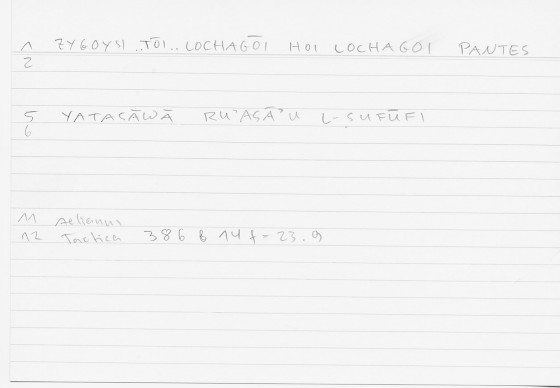 1 ZYGOYSI ..TŌI.. LOCHAGŌI HOI LOCHAGOI PANTES
2
5 YATASĀWĀ RU'ASĀ'U L-ṢUFŪFI
6
11 Aelianus
12 Tactica 386 b 14 f - 23.9